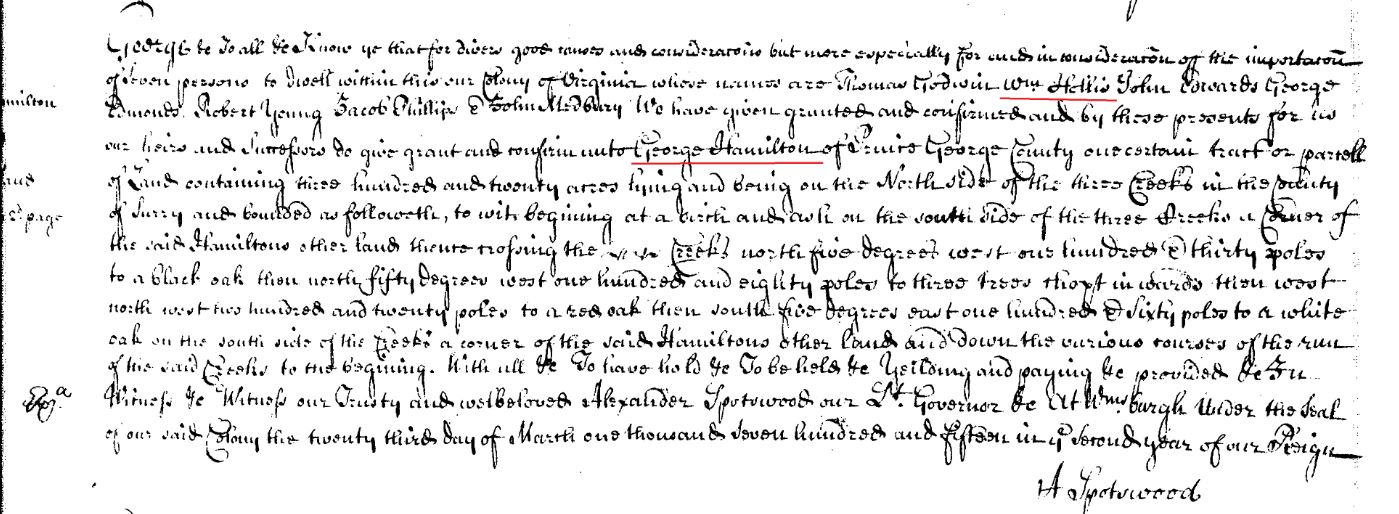 George &c To all &c Know ye that for divers good causes and consideracons but more especially for and in consideracon of the importacon
of Seven persons to dwell within this our Colony of Virginia whose names are Thomas Godwin Wm Hollis John Edwards George
milton
Edmonds Robert Young Jacob Phillips & John Medbury We have given granted and confirmed and by these presents for us
our heirs and Successors do give grant and confirm unto George Hamilton of Prince George County one certain tract or parcell
and
of Land containing three hundred and twenty acres lying and being on the North side of the three Creeks in the County
page
of Surry and bounded as followeth, to wit begining at a birch and ash on the south side of the three Creeks a Corner of
the said Hamiltons other land thence crossing the Creeks north five degrees west one hundred & thirty poles
to a black oak then north fifty degrees west one hundred and eighty poles to three trees chopt inwards then west
north west two hundred and twenty poles to a red oak then south five degrees east one hundred & Sixty poles to a white
oak on the south side of the Creeks a corner of the said Hamiltons other land and down the various courses of the run
of the said Creeks to the begining. With all &c To have hold &c To be held &c Yeilding and paying &c provided &c In
Witness &c Witness our Trusty and welbeloved Alexander Spotswood our Lt. Governor &c At Wmsburgh Under the Seal
of our said Colony the twenty third day of March one thousand Seven hundred and fifteen in ye Second year of our Reign
A Spotswood